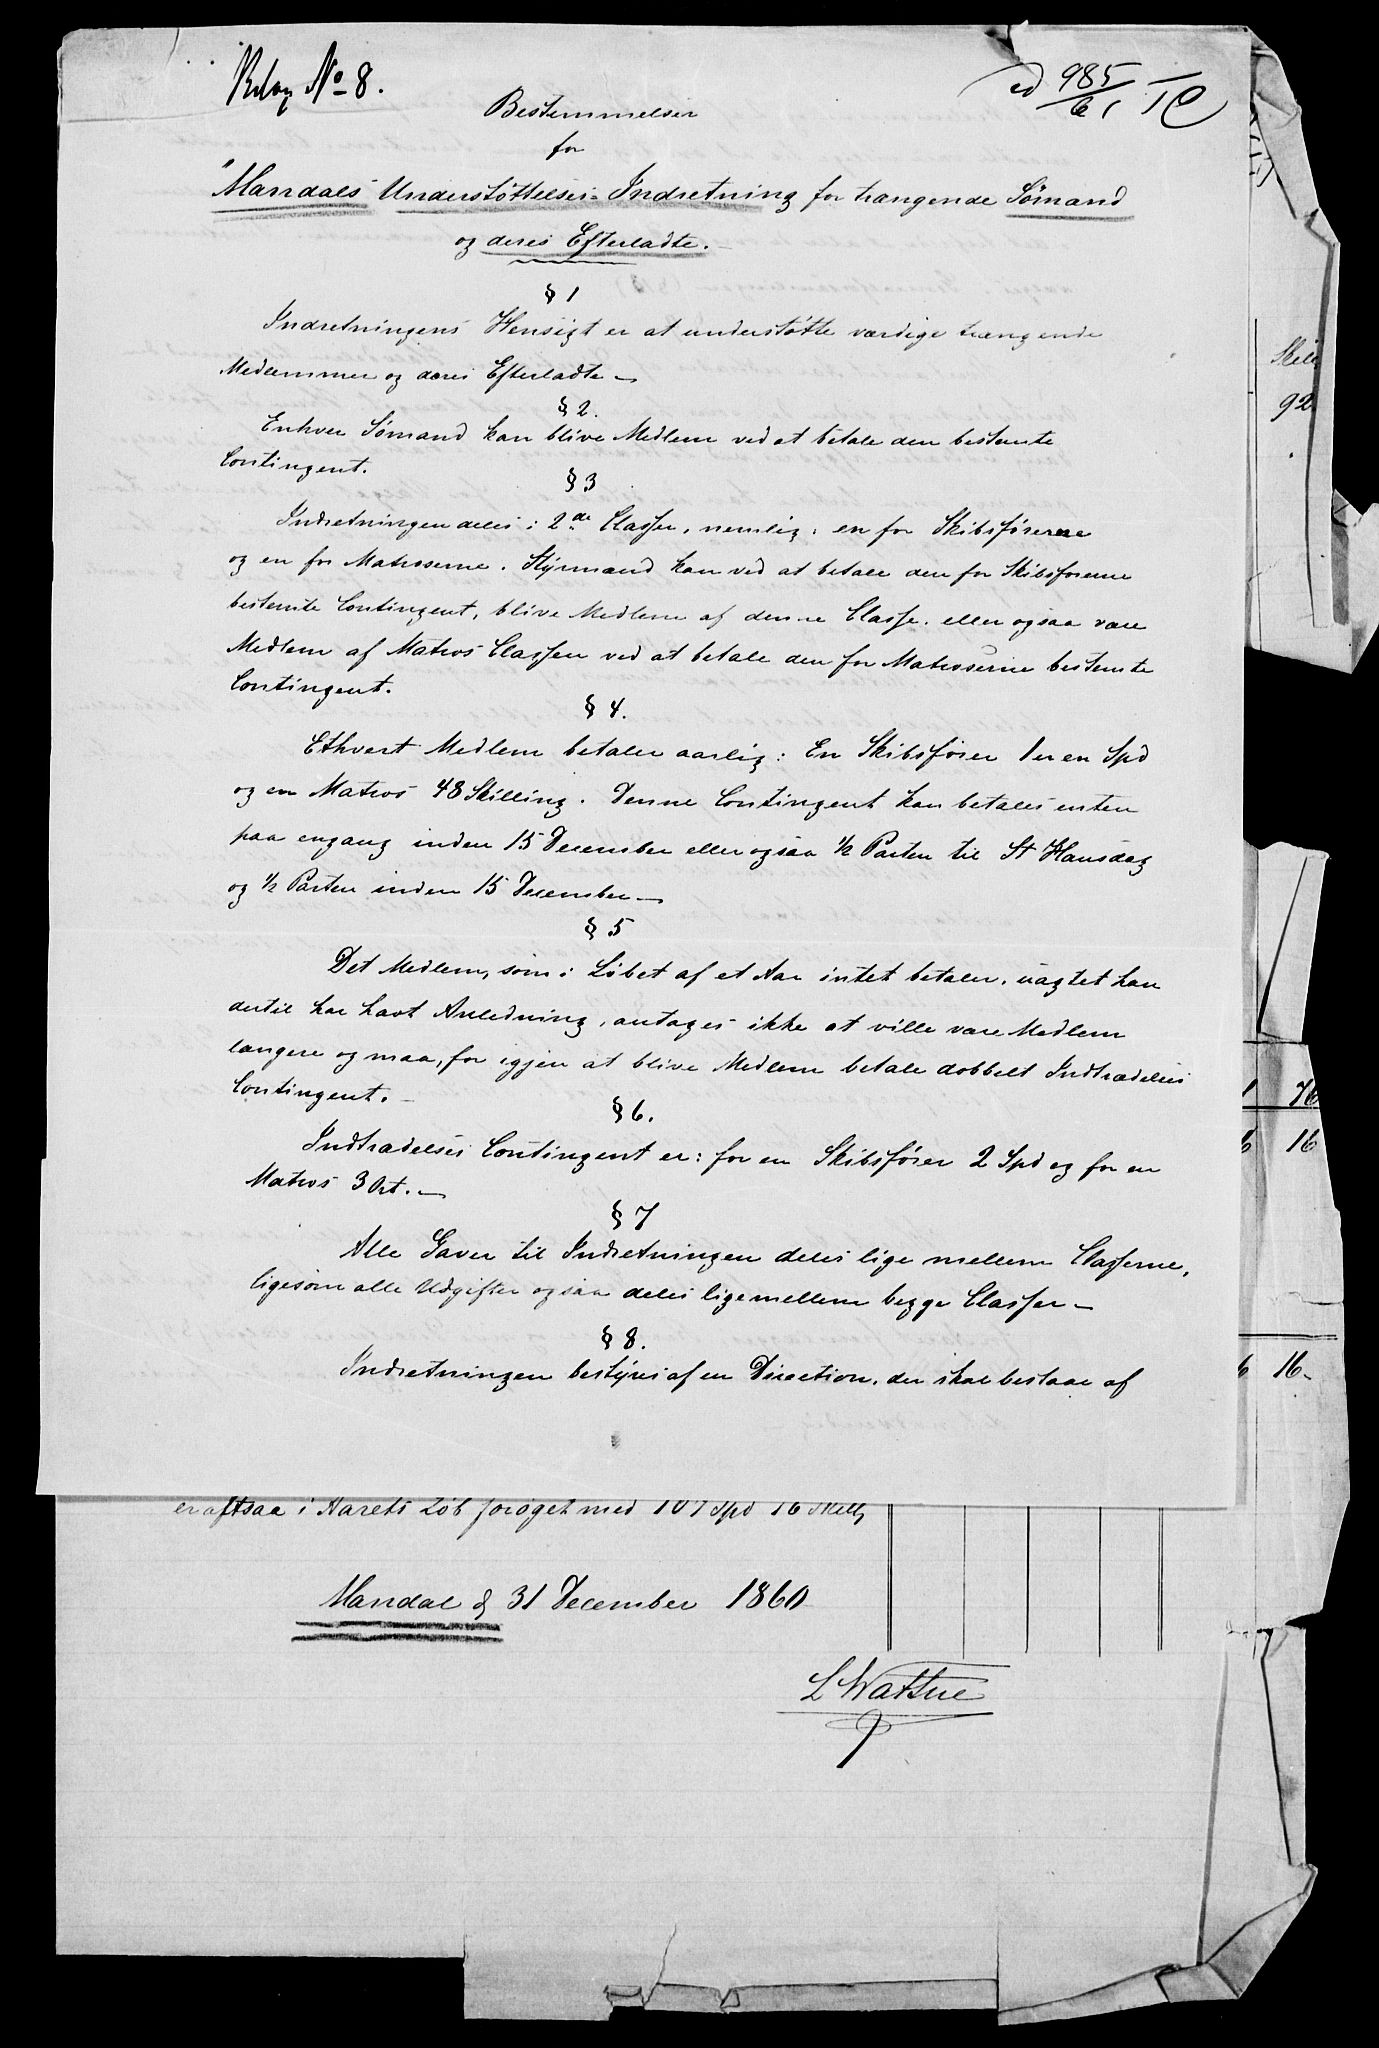 Bilag No 8.
ad 985/61
Bestemmelser
for
"Mandals Understøttelses-Indretning for trængende Sømænd
og deres Efterladte.
§ 1
Indretningens Hensigt er at understøtte værdige trængende
Medlemmer og deres Efterladte —
§ 2.
Enhver Sømand kan blive Medlem ved at betale den bestemte
Contingent.
§ 3
Indretningen deles i 2de Classer, nemlig: en for Skibsførerne
og en for Matroserne. Styrmænd kan ved at betale den for Skibsførerne
bestemte Contingent, blive Medlem af denne Classe, eller ogsaa være
Medlem af Matros Classen ved at betale den for Matroserne bestemte
Contingent.
§ 4.
Ethvert Medlem betaler aarlig: En Skibsfører 1 er en Spd
og en Matros 48 Skilling. Denne Contingent kan betales enten
paa engang inden 15 December eller ogsaa ½ Parten til St Hansdag
og ½ Parten inden 15 December —
§ 5
Det Medlem, som i Løbet af et Aar intet betaler, uagtet han
dertil har havt Anledning, antages ikke at ville være Medlem
længere og maa, for igjen at blive Medlem betale dobbelt Indtrædelses
Contingent. —
§ 6.
Indtrædelses Contingent er: for en Skibsfører 2 Spd og for en
Matros 3 Ort. —
§ 7
Alle Gaver til Indretningen deles lige mellem Classerne,
ligesom alle Udgifter ogsaa deles lige mellem begge Classer —
§ 8.
Indretningen bestyres af en Direction, der skal bestaae af
Skill
92
1 76
6 16
6 16.
er altsaa i Aarets Løb forøget med 107 Spd 16 Skill
Mandal d 31 December 1860
L Wattne